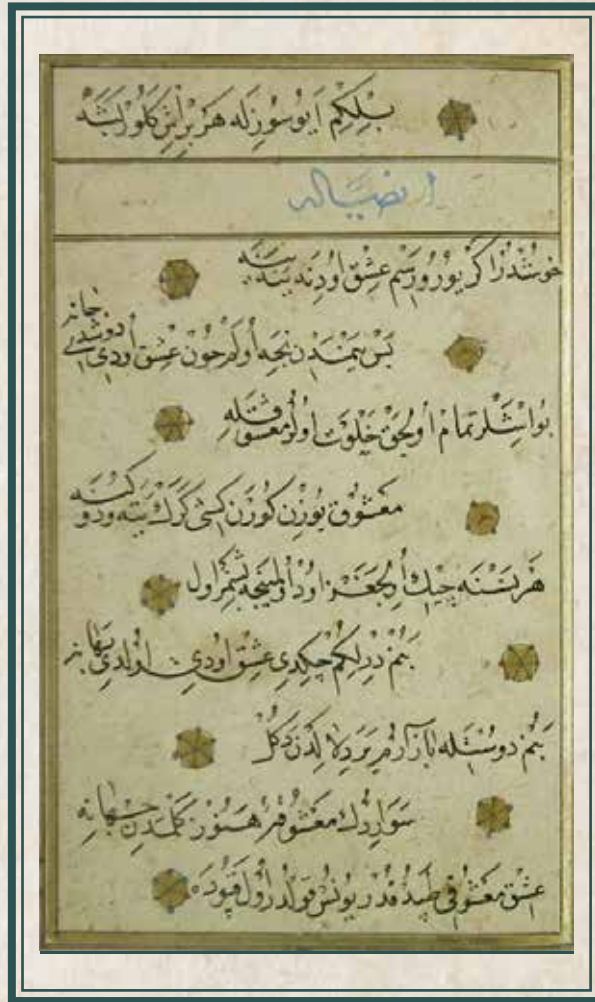 بلكم ايو سوزله هر بر اش كلور بشه
ايضا له
خوشدر اكر يورورسم عشق اودنه ينه ينه
بس بندن نجه اولم چون عشق اودى دوشدى جانه
بو ايشلر تمام اولجق خلوت اولر معشوقله
معشوق يوزن كورن كشى كرك يته و دوكنه
هر نسنه چيك اولجغز اودا اولمينجه بشمز اول
بنم درلكم چكدى عشق اودى اولدى بهانه
بنم دوستله بازارم دكل
سواردك معشوقمز هنوز كلمدن جهانه
عشق معشوقى طپدقدر يونس قولدر اول قپوده